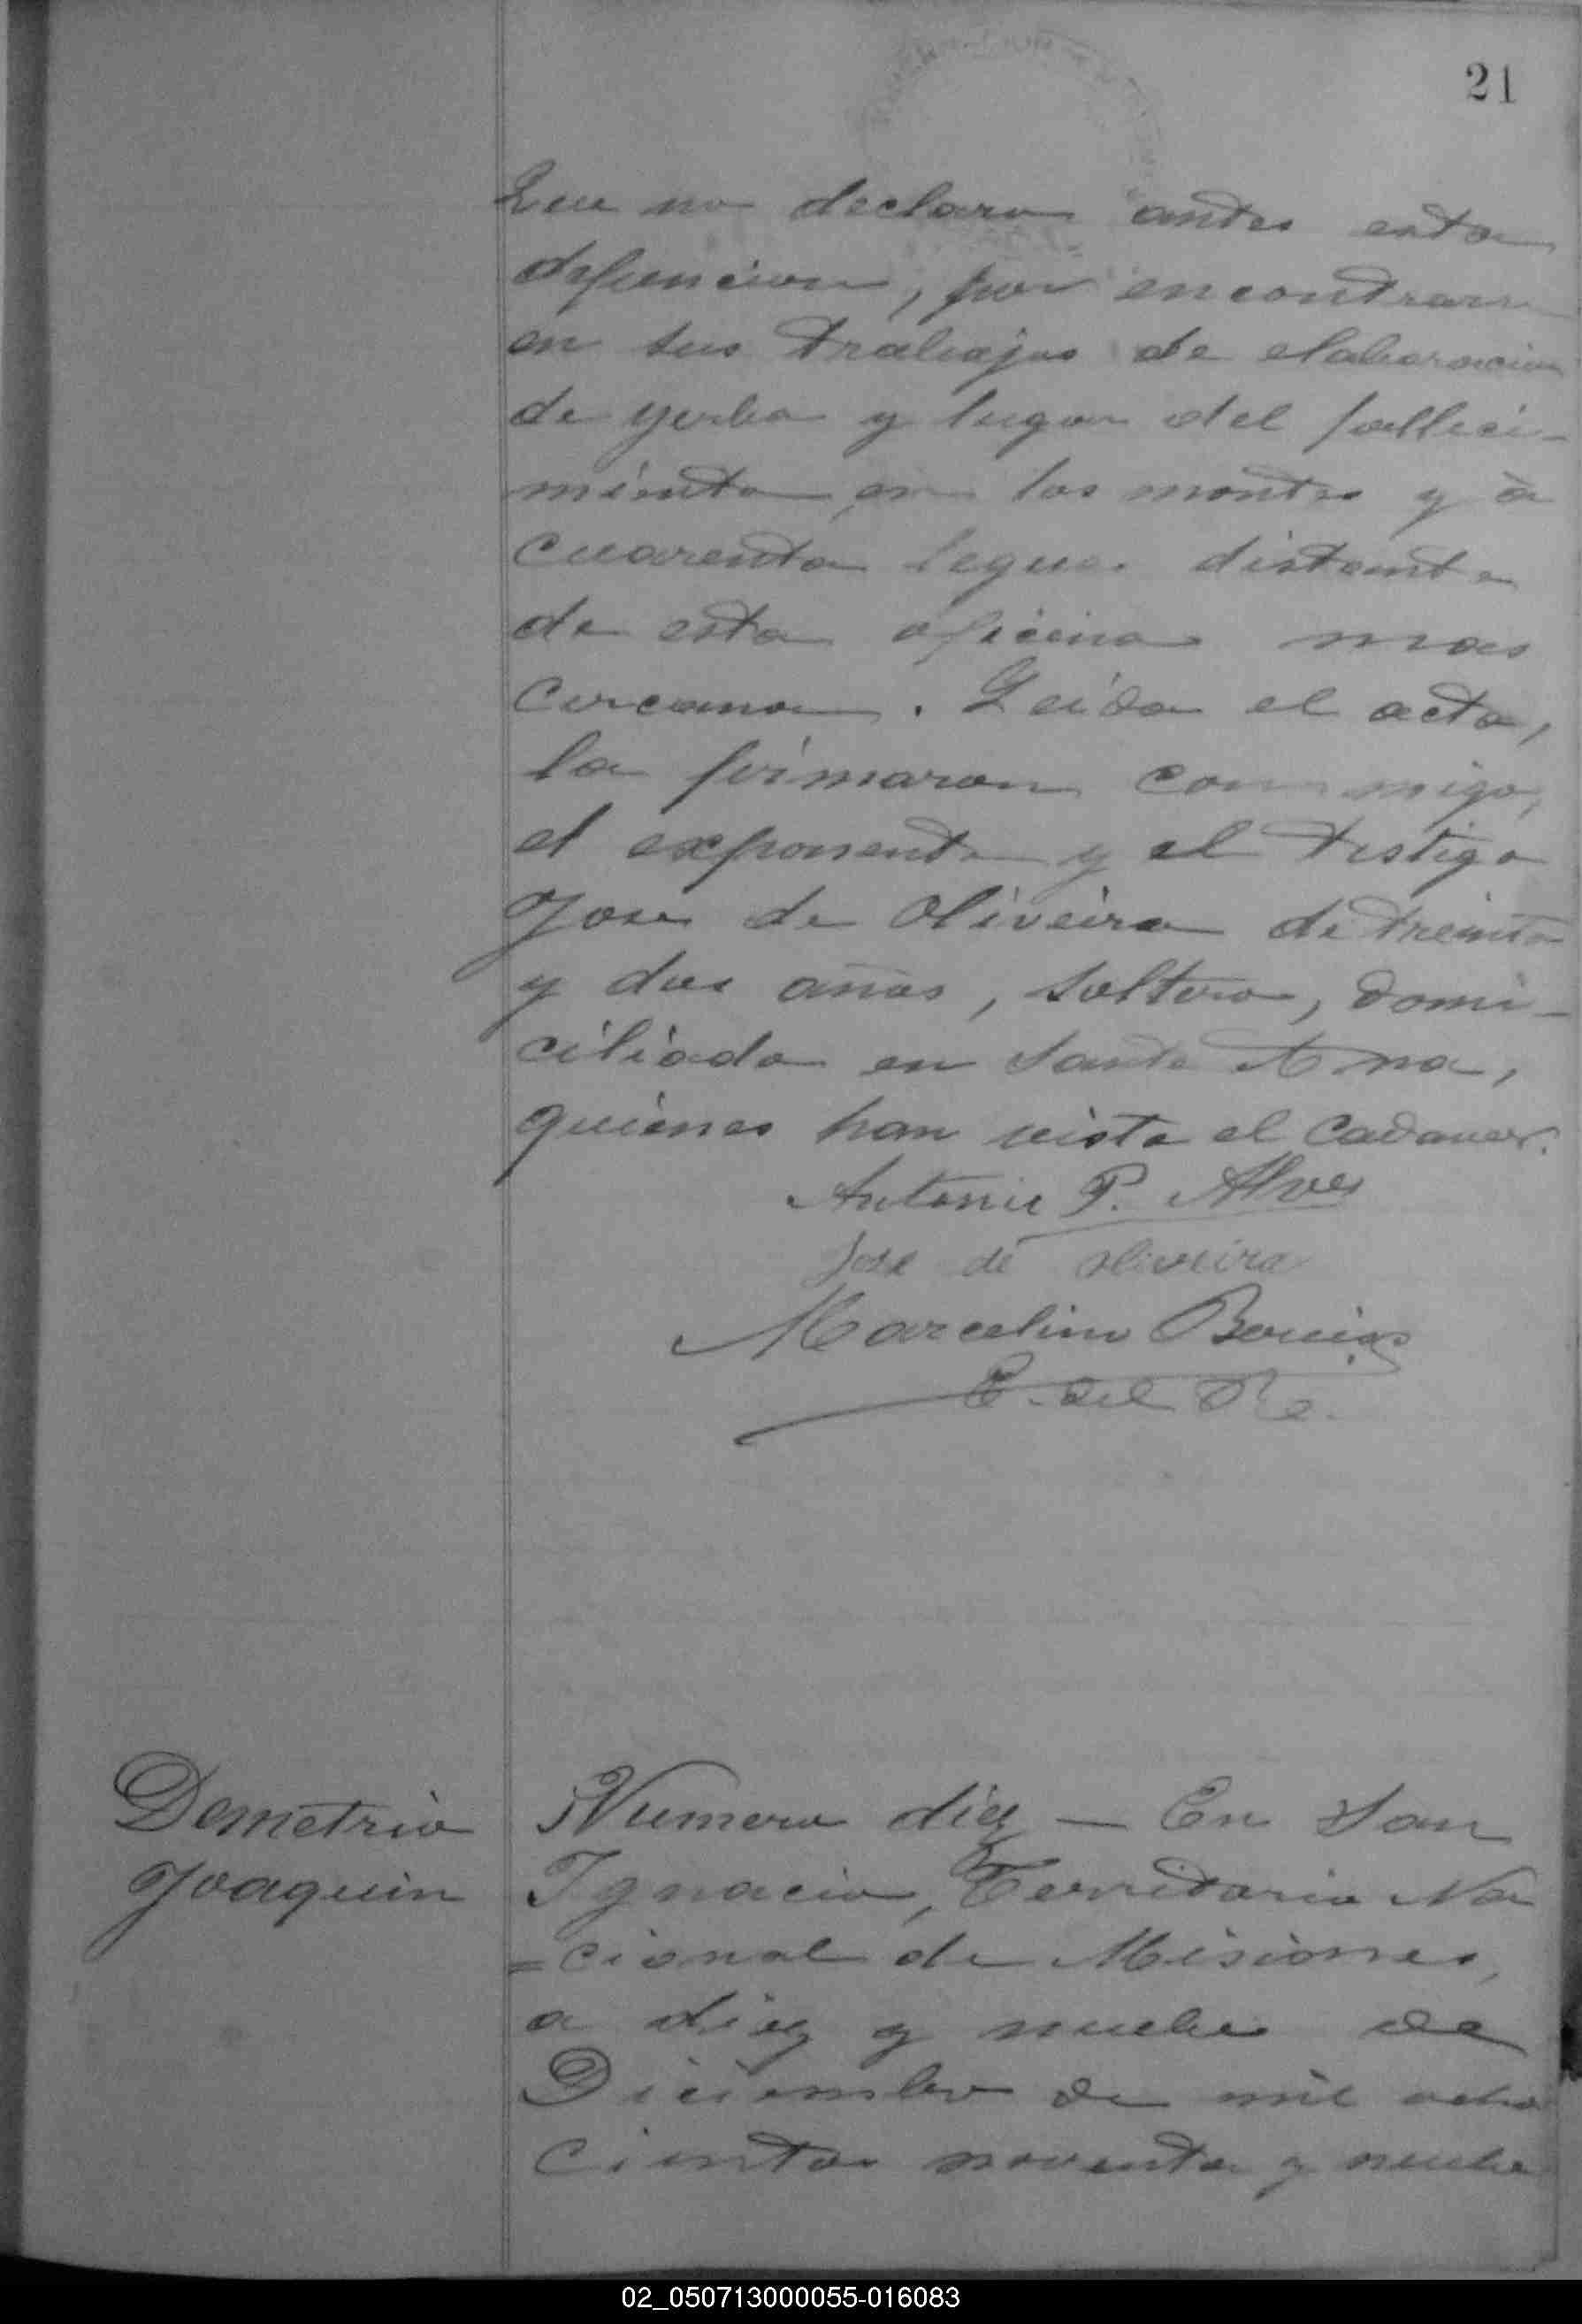 21
Que no declaro antes esta
defuncion, por encontrarse
en sus trabajos de elaboracion
de yerba y lugar del falleci-
miento en los montes y a
cuarenta leguas distante
de esta oficina mas
cercana. Leida el acta,
la firmaron con migo,
el exponente y el testigo
José de Oliveira de treinta
y dos años, soltero, domi-
ciliado en Santa Ana,
quienes han visto el cadaver.
Antonio P. Alves
José de Oliveira
Marcelino
E. del R. C.
Demetrio
Joaquin
Numero diez — En San
Ignacio, Territorio Na
=cional de Misiones,
a diez y nueve de
Diciembre de mil ocho
cientos noventa y nueve
02_050713000055-016083